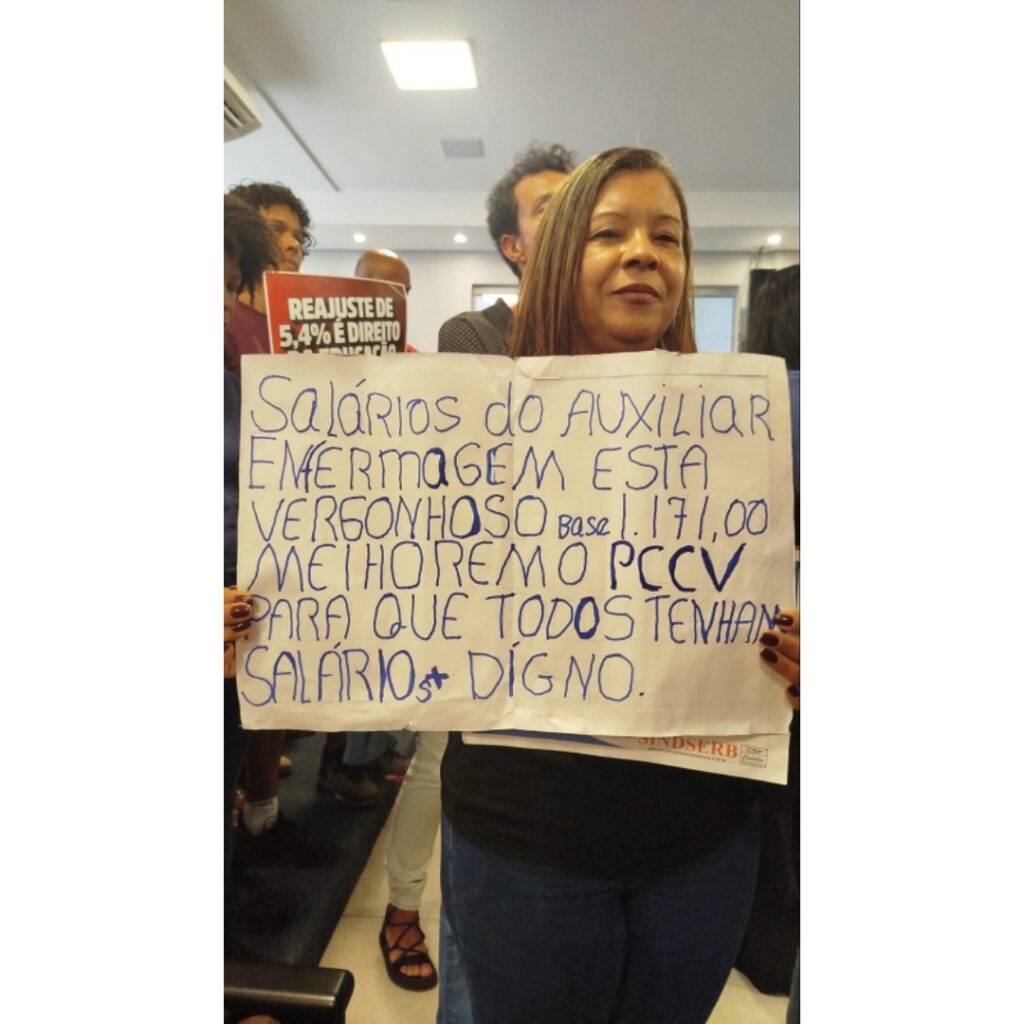 REAJUSTE DE
5,4% É DIREITO
DA EDUCAÇÃO
Salários do AUXILIAR
ENFERMAGEM ESTA
VERGONHOSO Base 1.171,00
MELHOREMO PCCV
PARA QUE TODOS TENHAM
SALÁRIOs* DÍGNO.
SINDSERB
CSP
Conlutas